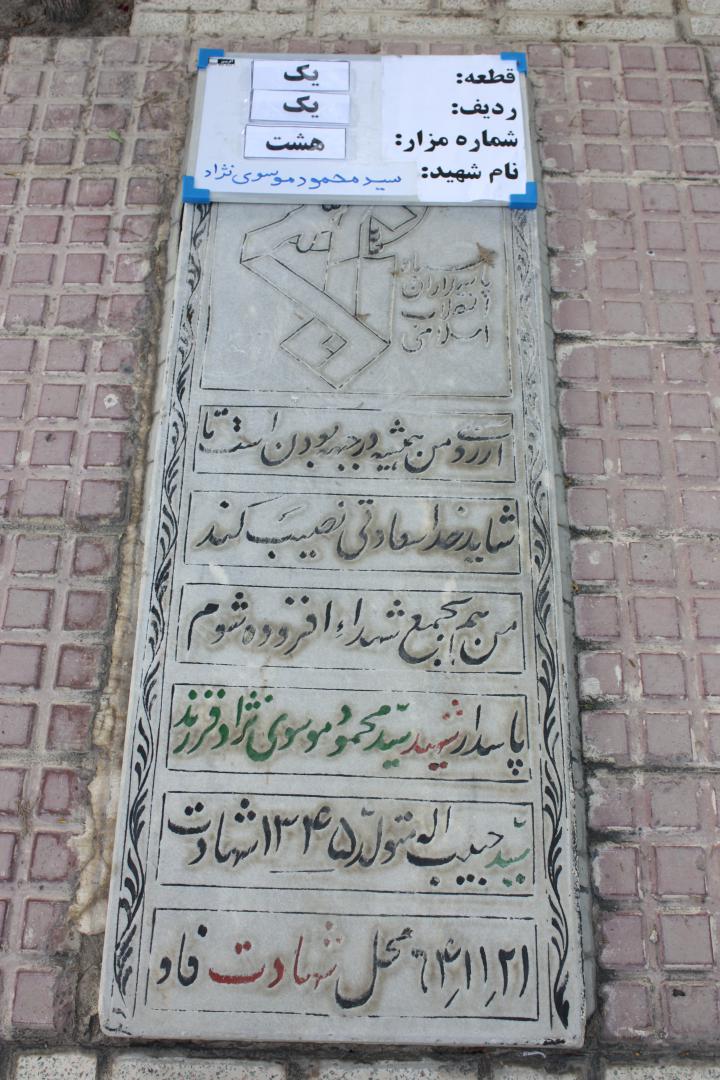 قطعه: یک
ردیف: یک
شماره مزار: هشت
نام شهید: سید محمود موسوی نژاد
سپاه
پاسداران
انقلاب
اسلامی
آرزوی من همیشه در جبهه بودن است تا
شاید خدا سعادتی نصیب کند
من هم بجمع شهداء افزوده شوم
پاسدار شهید سیّد محمود موسوی نژاد فرزند
سیّد حبیب اله متولّد ۱۳۴۵ شهادت
۶۴,۱۱,۲۱ محل شهادت فاو